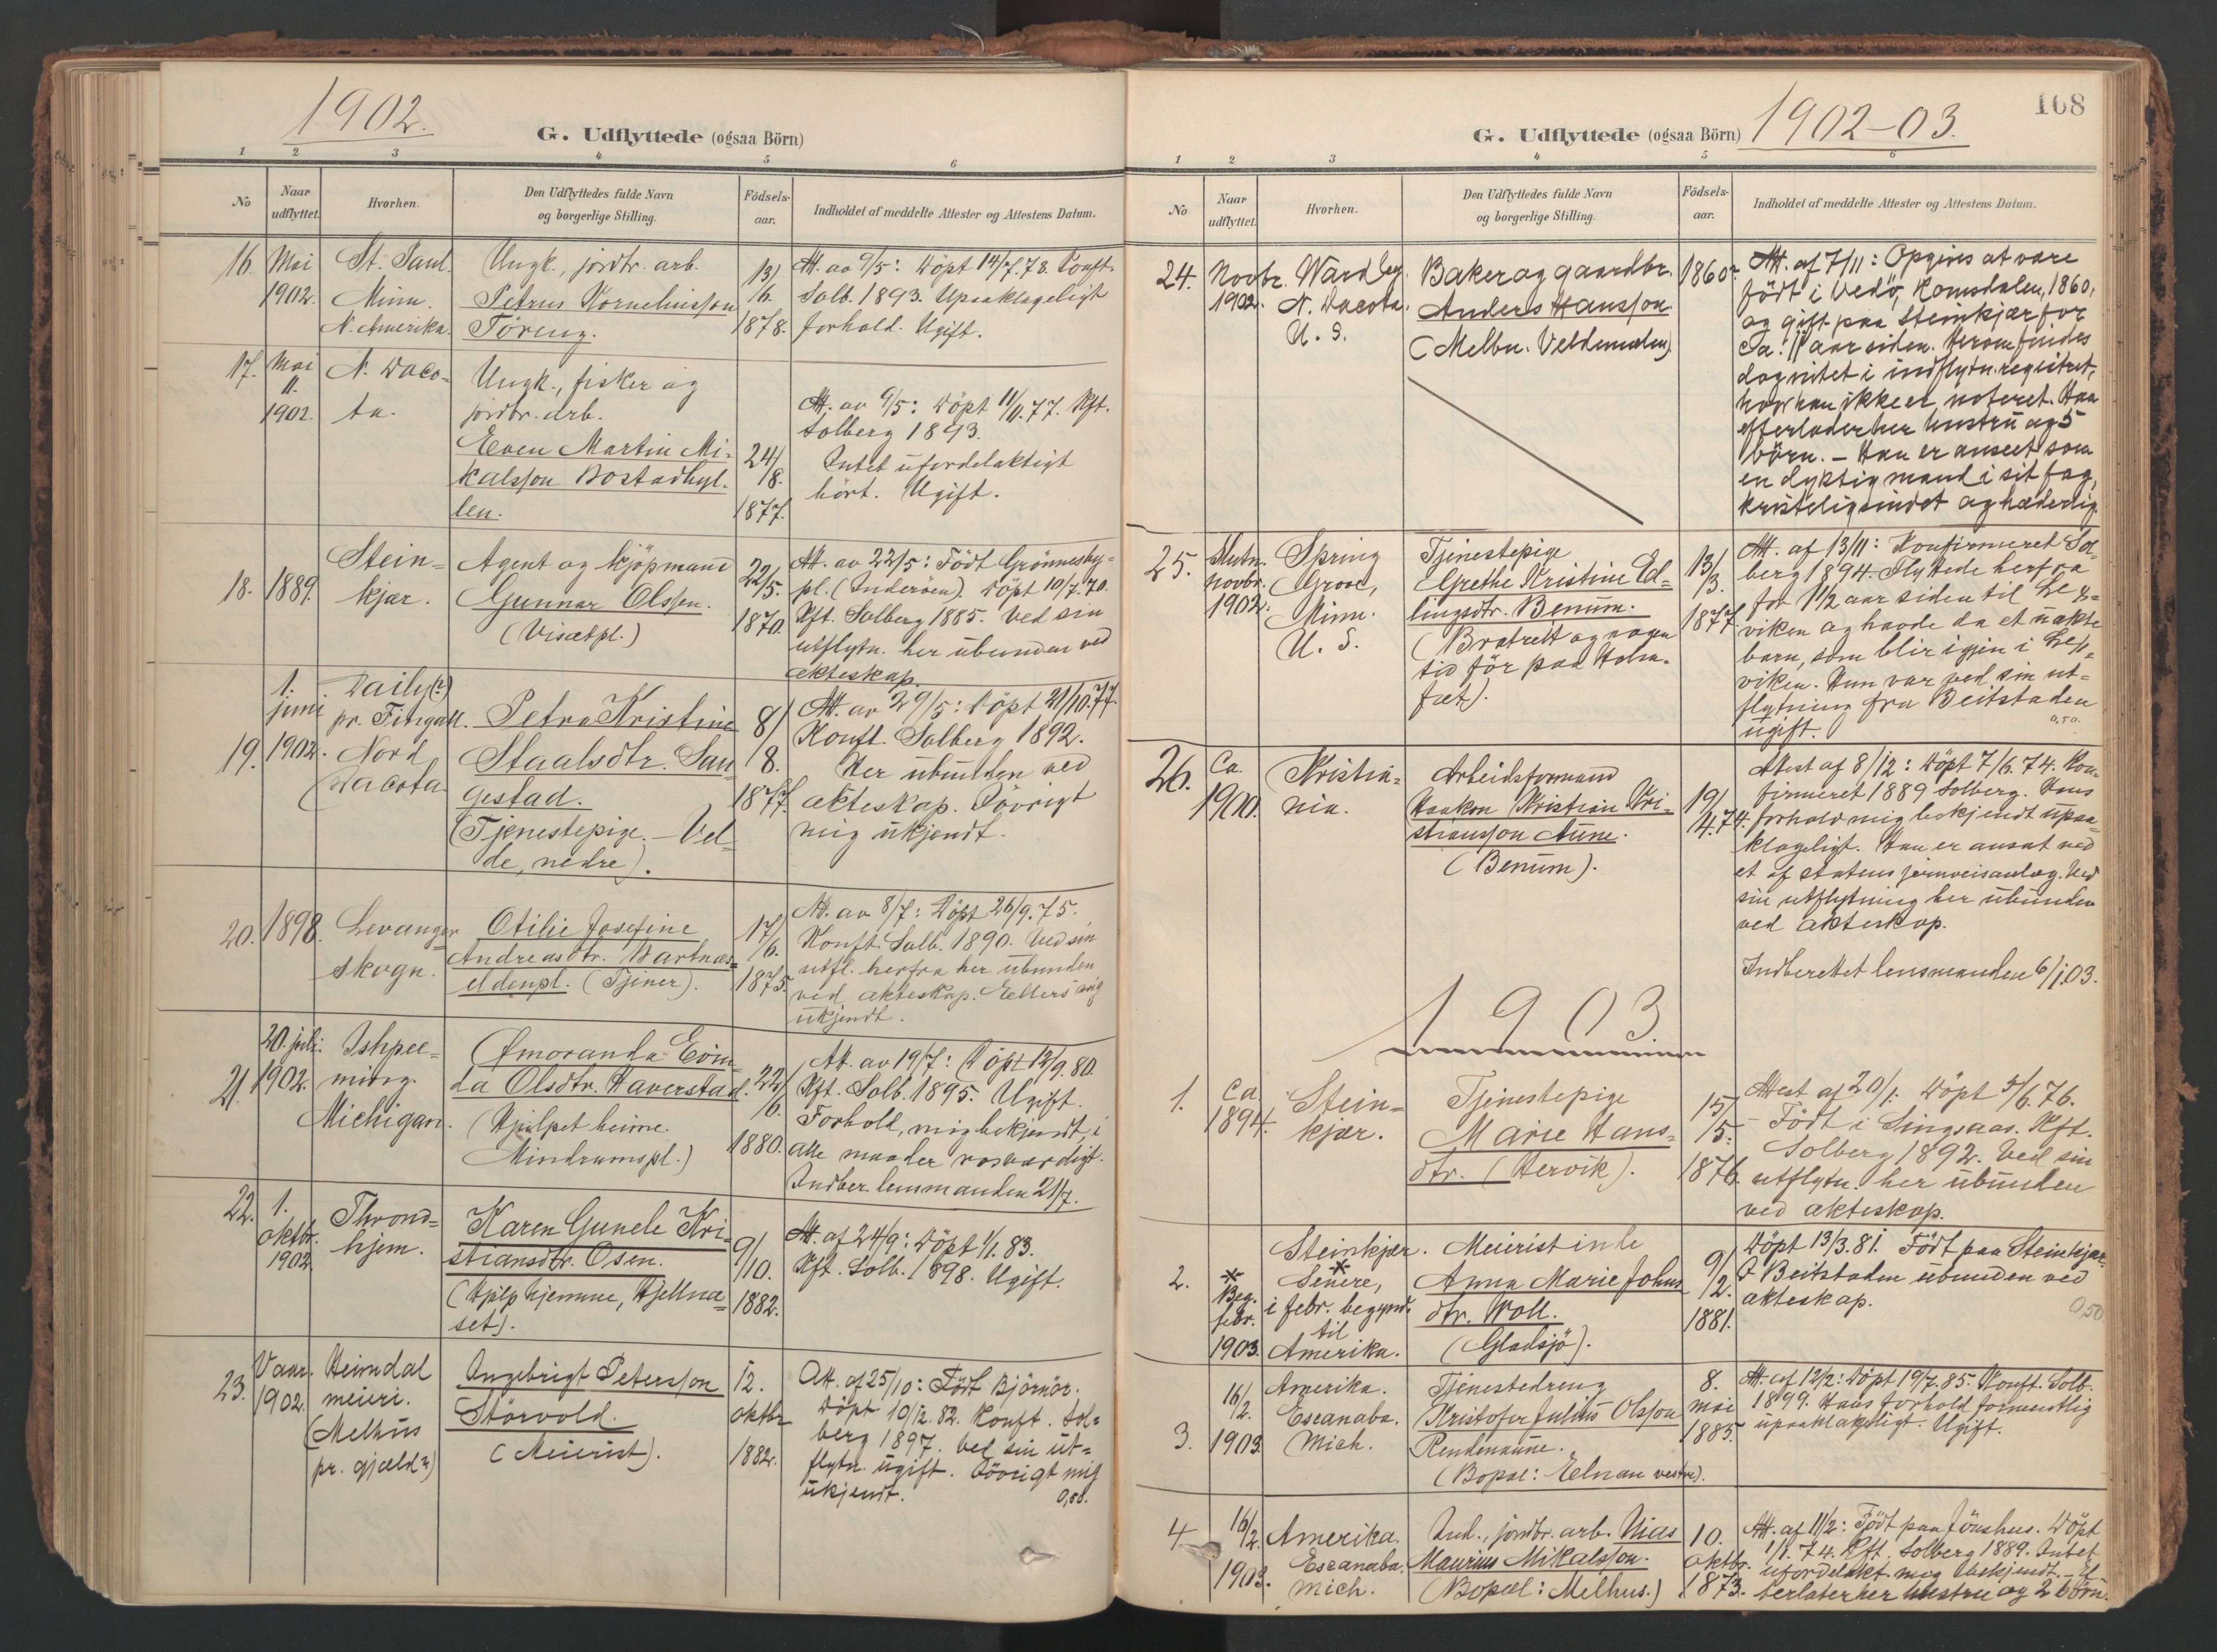 1902.
G. Udflyttede (ogsaa Börn)
1 2 3 4 5 6
No
Naar udflyttet.
Hvorhen.
Den Udflyttedes fulde Navn
og borgerlige Stilling.
Födsels-
aar.
Indholdet af meddelte Attester og Attestens Datum.
16.
Mai
1902.
St. Paul.
Minn.
N. Amerika.
Ungk., jordbr. arb.
Petrus Kornelinsson
Föreng.
13/
6.
1878.
Att. av 9/5: Döpt 14/7.78. Konft.
Solb. 1893. Upaaklageligt
forhold. Ugift.
17.
Mai
11.
1902.
N. Daco-
ta.
Ungk., fisker og
jordbr. arb.
Even Martin Mi-
kalsson Bostadhyl-
len.
24/
8.
1877.
Att. av 9/5: Döpt 11/11.77. Kft.
Solberg 1893.
Intet ufordelaktigt
hört. Ugift.
18.
1889.
Stein-
kjær.
Agent og kjöpmand
Gunnar Olssen.
(Visætpl.)
22/5.
1870.
Att. av 22/5: Födt Grönnesby-
pl. (Inderöen). Döpt 10/7.70.
Kft. Solberg 1885. Ved sin
utflytn. her übunden ved
ekteskap.
19.
1.
juni
1902.
Daily(?)
pr. Fingall.
Nord
Dacota
Petra Kristine
Staalsdtr. San-
gestad.
(Tjenestepige. - Vel-
de, nedre).
8/
8.
1877.
Att. av 29/5: Döpt 21/10.77.
Konft. Solberg 1892.
Her übunden ved
ekteskap. Iövrigt
mig ukjendt.
20.
1898.
Levanger
skogn.
Otilie Josefine
Andreasdtr. Bartnes-
eldenpl. (Tjener).
17/
6.
1875.
Att. av 8/7: Döpt 26/9.75.
Konft. Solb. 1890. Ved sin
utfl. herfra her übunden
ved ekteskap. Ellers mig
ükjendt.
21.
20. juli.
1902.
Ishpee-
ming.
Michigan.
Amoranda Evin-
da Olsdtr. Haverstad.
(Hjelpet heime.
Mindramspl.)
22/
6.
1880.
Att. av 19/7: Döpt 12/9.80.
Kft. Solb. 1895. Ugift.
Forhold, mig bekjendt, i
alle maader rosværdigt.
Indber. lensmanden 21/7.
22.
1.
oktbr.
1902.
Thrond-
hjem.
Karen Gunele Kri-
stiansdtr. Osen.
(Hjelp hjemme, Hjellne-
set).
9/
10.
1882.
Att. af 24/9: Döpt 1/1.83.
Kft. Solb. 1898. Ugift.
23.
Vaar.
1902.
Heimdal
meieri.
(Melhüs
pr. gjæld?)
Ingebrigt Petersson
Störvold.
(Meierist).
12.
oktbr
1882.
Att. af 25/10: Födt Björnör.
Döpt 10/12.82. Konft. Sol-
berg 1897. Ved sin üt-
flytn. ügift. Iövrigt mig
ükjendt. 0,50.
168
G. Udflyttede (ogsaa Börn)
1902-03.
1 2 3 4 5 6
No
Naar udflyttet.
Hvorhen.
Den Udflyttedes fulde Navn
og borgerlige Stilling.
Födsels-
aar.
Indholdet af meddelte Attester og Attestens Datum.
24.
Novbr.
1902.
N. Dacota.
U. S.
Baker og gaardbr.
Anders Hansson
(Melbu. Veldemelen).
1860?
Att. af 7/11: Opgives at være
födt i Vedö, Romsdalen, 1860,
og gift paa Steinkjær for
ca. 11 aar siden. Herom findes
dog intet i indflytn. registret,
hvor han ikke er noteret. Han
efterlader her hustrü og 5
börn. - Han er anseet som
en dyktig mand i sit fag,
kristelig sindet og hæderlig.
25.
Slutn.
novbr.
1902.
Spring
Grove,
Minn.
U. S.
Tjenestepige
Grethe Kristine El-
lingsdtr. Benüm.
(Bratreit og nogen
tid för paa Holm-
fæt).
13/
3.
1877.
Att. af 13/11: Konfirmeret Sol-
berg 1894. Flyttede herfra
for 1 1/2 aar siden til Lex-
viken og havde da et üækte
barn, som blir igjen i Lex-
viken. Hun var ved sin ut-
flytning fra Beitstaden
ügift. 0,50.
26.
Ca.
1900.
Kristia-
nia.
Arbeidsformand
Haakon Kristian Kri-
stiansson Aune.
(Benüm).
19/
4.74.
Attest af 8/12: Döpt 7/6.74. Kon-
firmeret 1889 Solberg. Hans
forhold mig bekjendt üpaa-
klageligt. Han er ansat ved
et af statens jernveisanlæg. Ved
sin utflytning her übunden
ved ekteskap.
Indberettet lensmanden 6/1.03.
1903.
1.
Ca
1894.
Stein-
kjær.
Tjenestepige
Marie Hans-
dtr. (Hervik).
15/
5.
1876.
Attest af 20/1: Döpt 5/6.76.
Födt i Singsaas. Kft.
Solberg 1892. Ved sin
utflytn. her übunden
ved ekteskap.
2.
*
Beg.
febr.
1903.
Steinkjær.
*
Senere,
i febr. begynd.
til
Amerika.
Meieristinde
Anna Marie Johns
dtr. Woll.
(Gladsjö).
9/
2.
1881.
Döpt 13/3.81. Födt paa Steinkjær.
I Beitstaden übunden ved
ekteskap.
0,50
3.
16/
2.
1903.
Amerika.
Escanaba.
Mich.
Tjenestedreng
Kristofer Julius Olsson
Rendemüne.
(Bopæl: Eelnan vestre).
8.
mai
1885.
Att. af 12/2: Döpt 19/7.85. Konft. Solb.
1899. Hans forhold formentlig
upaaklageligt. Ugift.
4
16/
2.
1903.
Amerika.
Escanaba.
Mich.
Ind., jordbr. arb. Uias
Maurius Mikalsson.
(Bopæl: Melhus.)
10.
oktbr.
1873.
Att. af 11/2: Födt paa Jönshus. Döpt
1/1.74. Kft. Solberg 1889. Intet
ufordelakt. mig bekjendt. - Ef-
terlater her hustru og 2 börn.